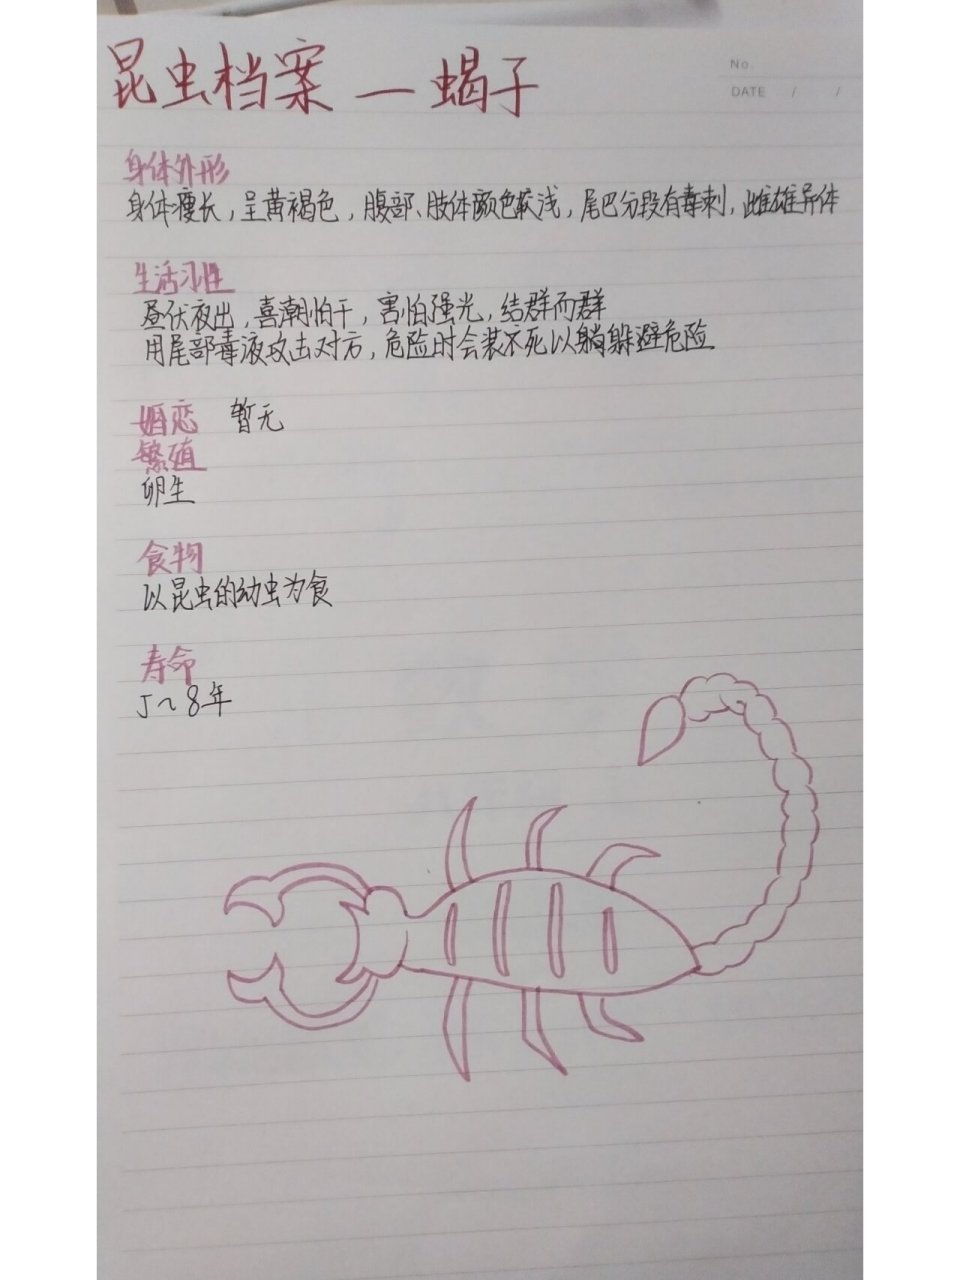 昆虫档案 — 蝎子
No.
DATE / /
身体外形
身体瘦长，呈黄褐色，腹部、肢体颜色较浅，尾巴分段有毒刺，雌雄异体
生活习性
昼伏夜出，喜潮怕干，害怕强光，结群而群
用尾部毒液攻击对方，危险时会装不死以躺躲避危险
婚恋 暂无
繁殖
卵生
食物
以昆虫的幼虫为食
寿命
5~8年